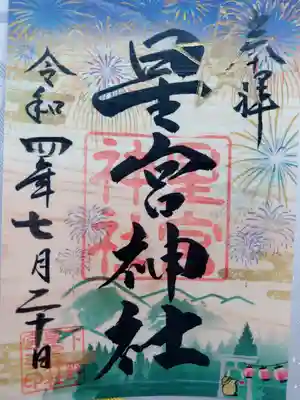 奉拝
星宮神社
星宮
神社
令和四年七月二十日